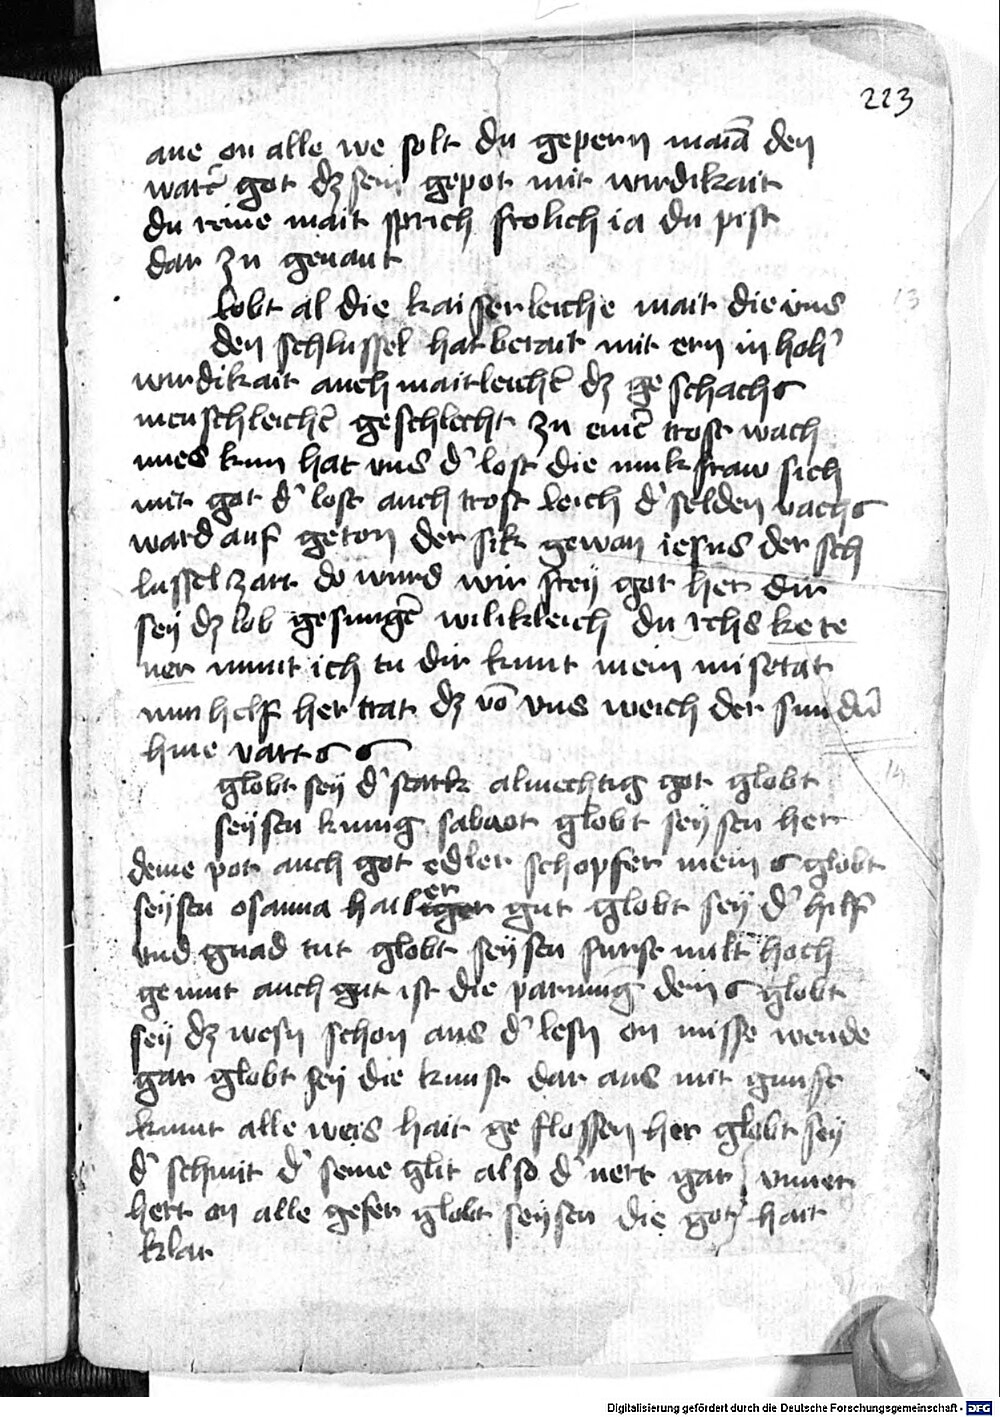 223
aue on alle we solt du gepern maiā den
warē got dʒ sein gepot mit wirdikait
du reine mait sprich frolich ia du pist
dar zu genant
lobt al die kaiserleiche mait die vns
13
den schlussel hat berait mit ern in hoh'
wirdikait auch maitleichē dʒ ge schachs
menschleichē geschlecht zu einē trost wach
kun hat vns d' lost die mukfraw sich
mit got d' lost auch trost leich d' selden vachs
ward auf geton der sik gewan iesus der sch
lussel zart do wurd wir frey got her dir
sey dʒ lob gesungē wilikleich du ichs ke re
ner nimt ich tu dir kunt mein misetat
nun helf her trat dʒ vō vns weich der sun dn̄
hine vart
14
globt sey d' stark almechtig got globt
seystu kunig sabaot globt seystu her
deine pot auch got edler schopfer mein globt
seystu osanna hailiger er gut globt sey d' hilf
vnd gnad tut globt seystu furst milt hoch
gemut auch gut ist die parmūg dein globt
sey dʒ wesn schon aus d' lesn on misse wende
gar globt sey die kunst dar aus mit gunst
kumt alle weis hait ge flossen her globt sey
d' schnit d' seine glit also d' nert gar vnuer
hert on alle gefer globt seystu die got hait
klar
Digitalisierung gefördert durch die Deutsche Forschungsgemeinschaft - DFG